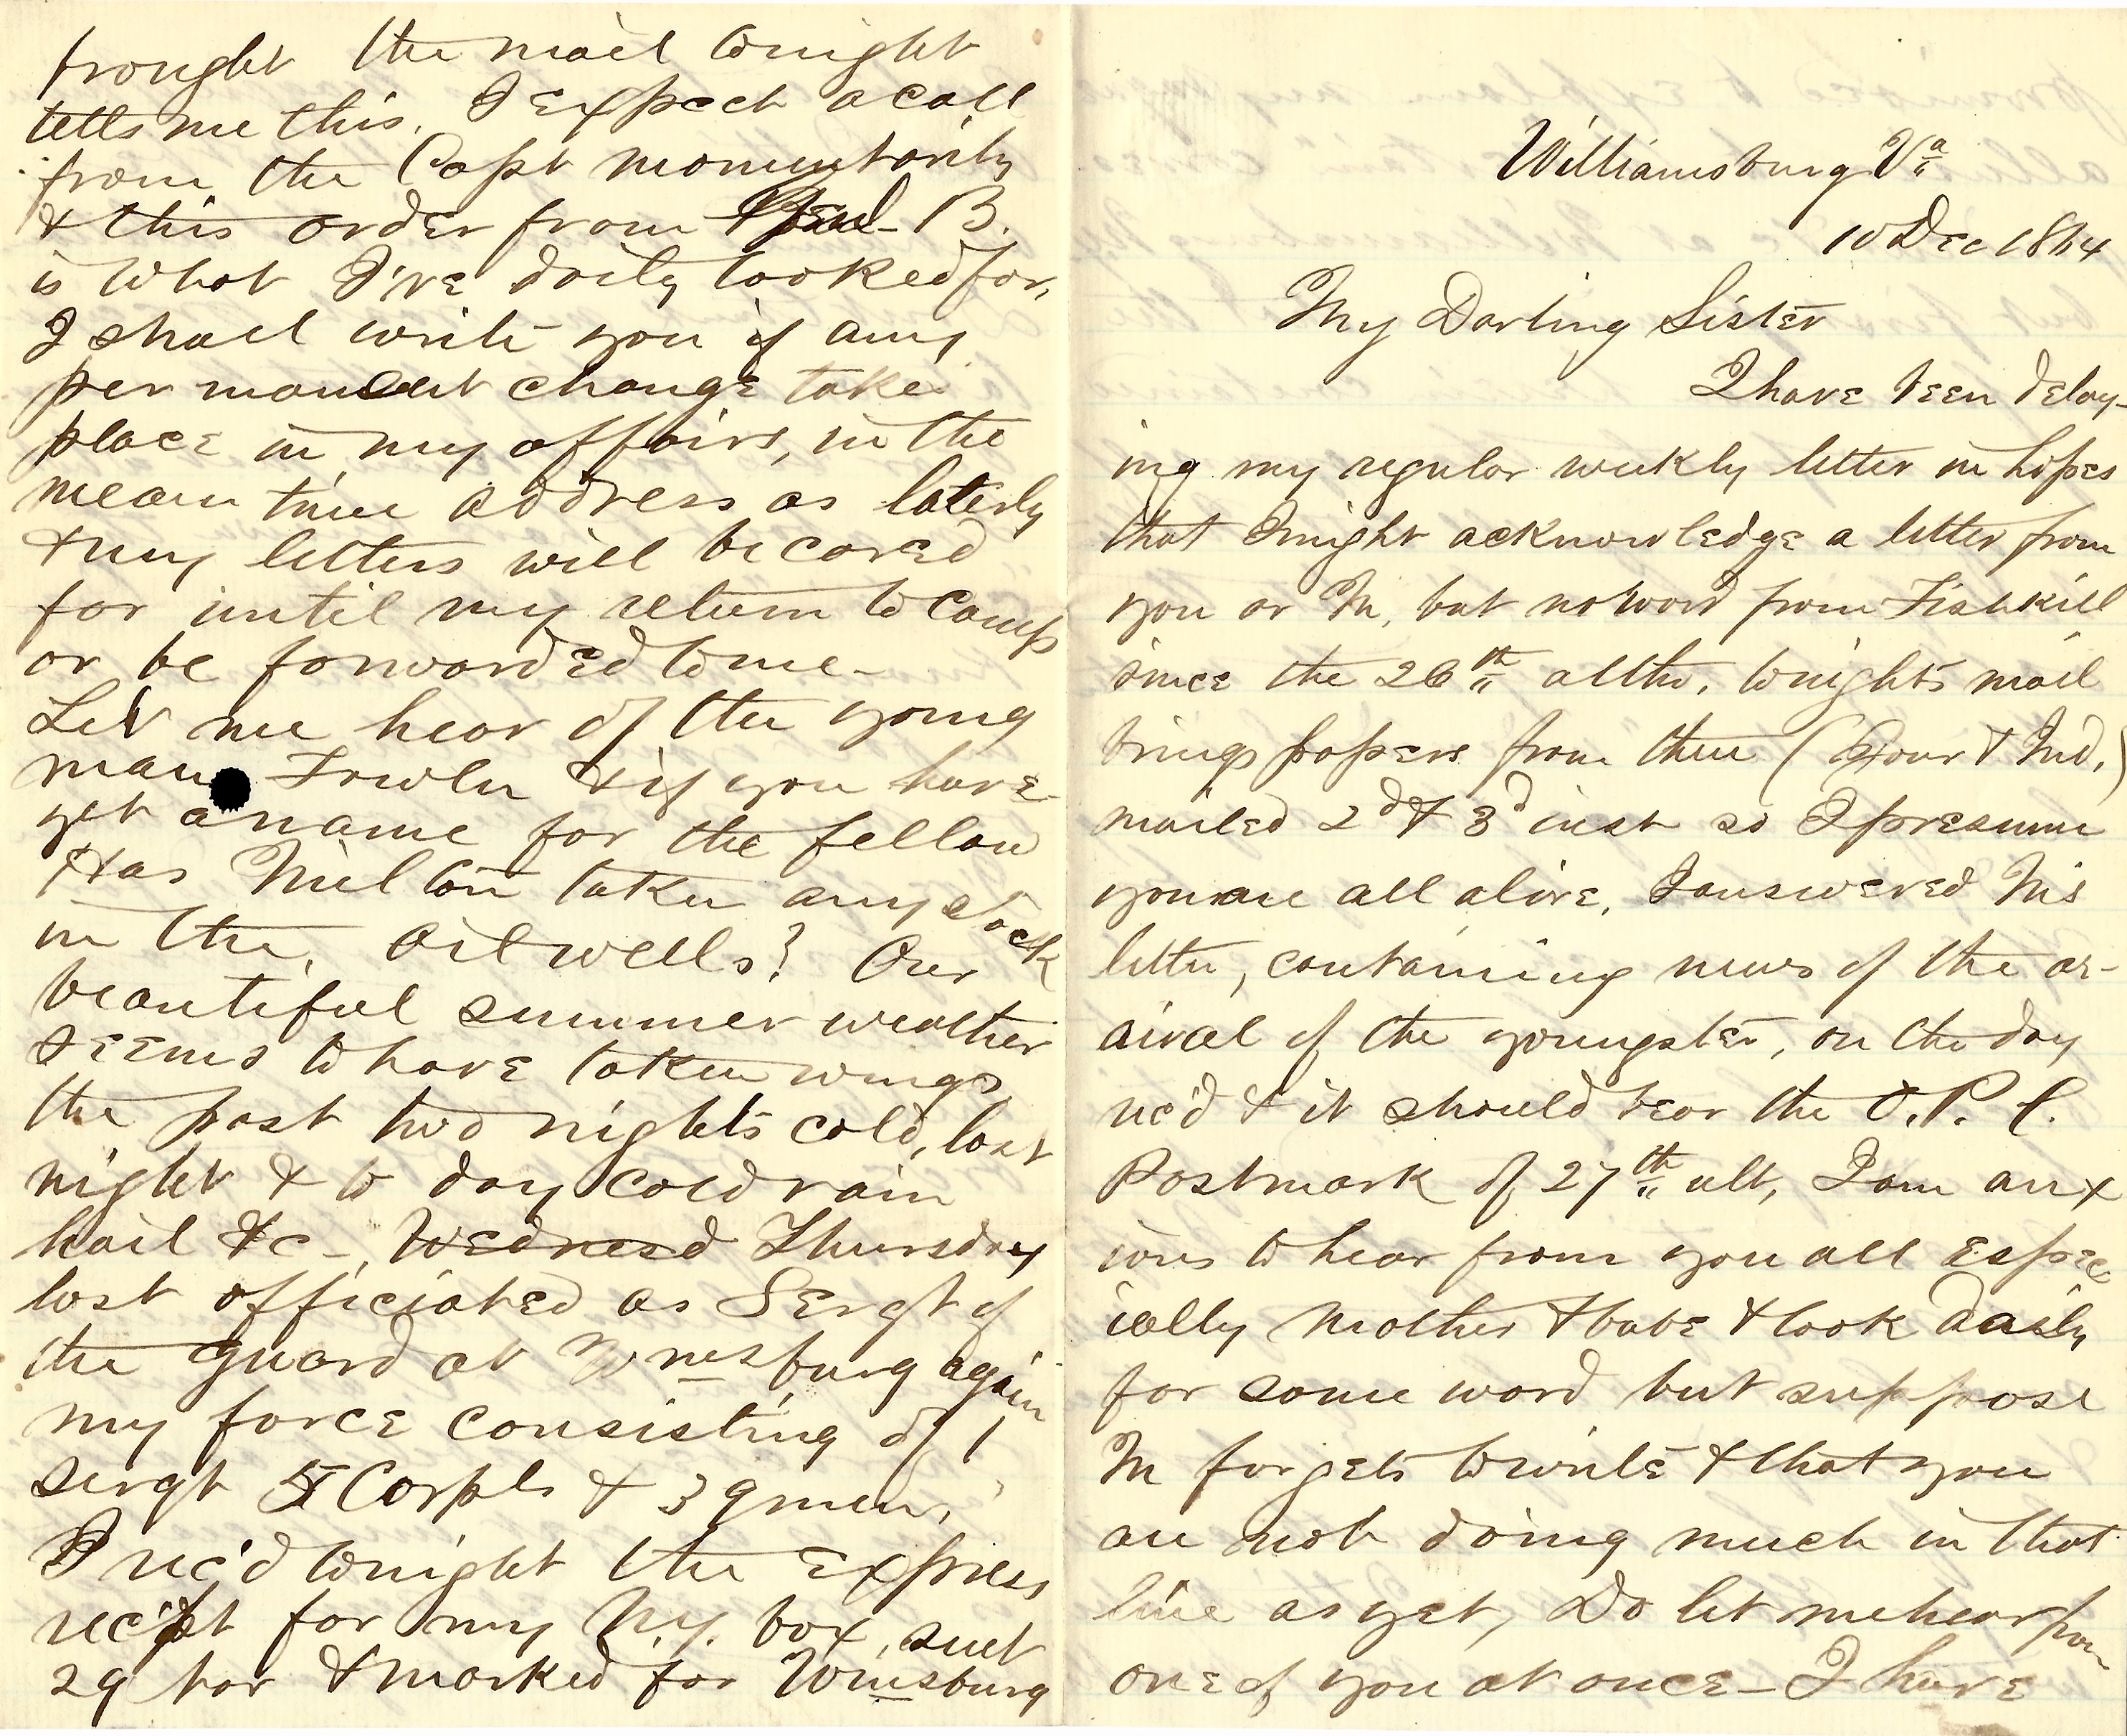 Williamsburg Va
10 Dec 1864
My Darling Sister
I have been delay-
ing my regular weekly letter in hopes
that I might acknowledge a letter from
you or M, but no word from Fishkill
since the 26th altho, tonight's mail
brings papers from there (Jour & Ind.)
mailed 2d & 3d inst so I presume
you are all alive, I answered M's
letter, containing news of the ar-
rival of the youngster, on the day
rec'd & it should bear the O.P.C.
Postmark of 27th ult, I am anx
ious to hear from you all espec
ially Mother & babe & look daily
for some word but suppose
M forgets to write & that you
are not doing much in that
line as yet, Do let me hear from
one of you at once - I have
brought the mail tonight
tells me this. I expect a call
from the Capt momentarily
& this order from B.
is what I've daily looked for,
I shall write you if any
permanent change take
place in my affairs, in the
mean time address as laterly
& my letters will be cared
for until my return to camp
or be forwarded to me -
Let me hear of the young
man Fowler & if you have
yet a name for the fellow
Has Milton taken any stock
in the, Oil wells? Our
beautiful summer weather
seems to have taken wings
the past two nights cold, last
night & to day cold rain
hail &c -, Wednesd Thursday
last officiated as Sergt of
the guard at Wmsburg again
my force consisting of 1
sergt Corpls & 39 men,
I rec'd tonight the Express
recipt for my N.Y. box, sent
29 Nov & marked for Wmsburg